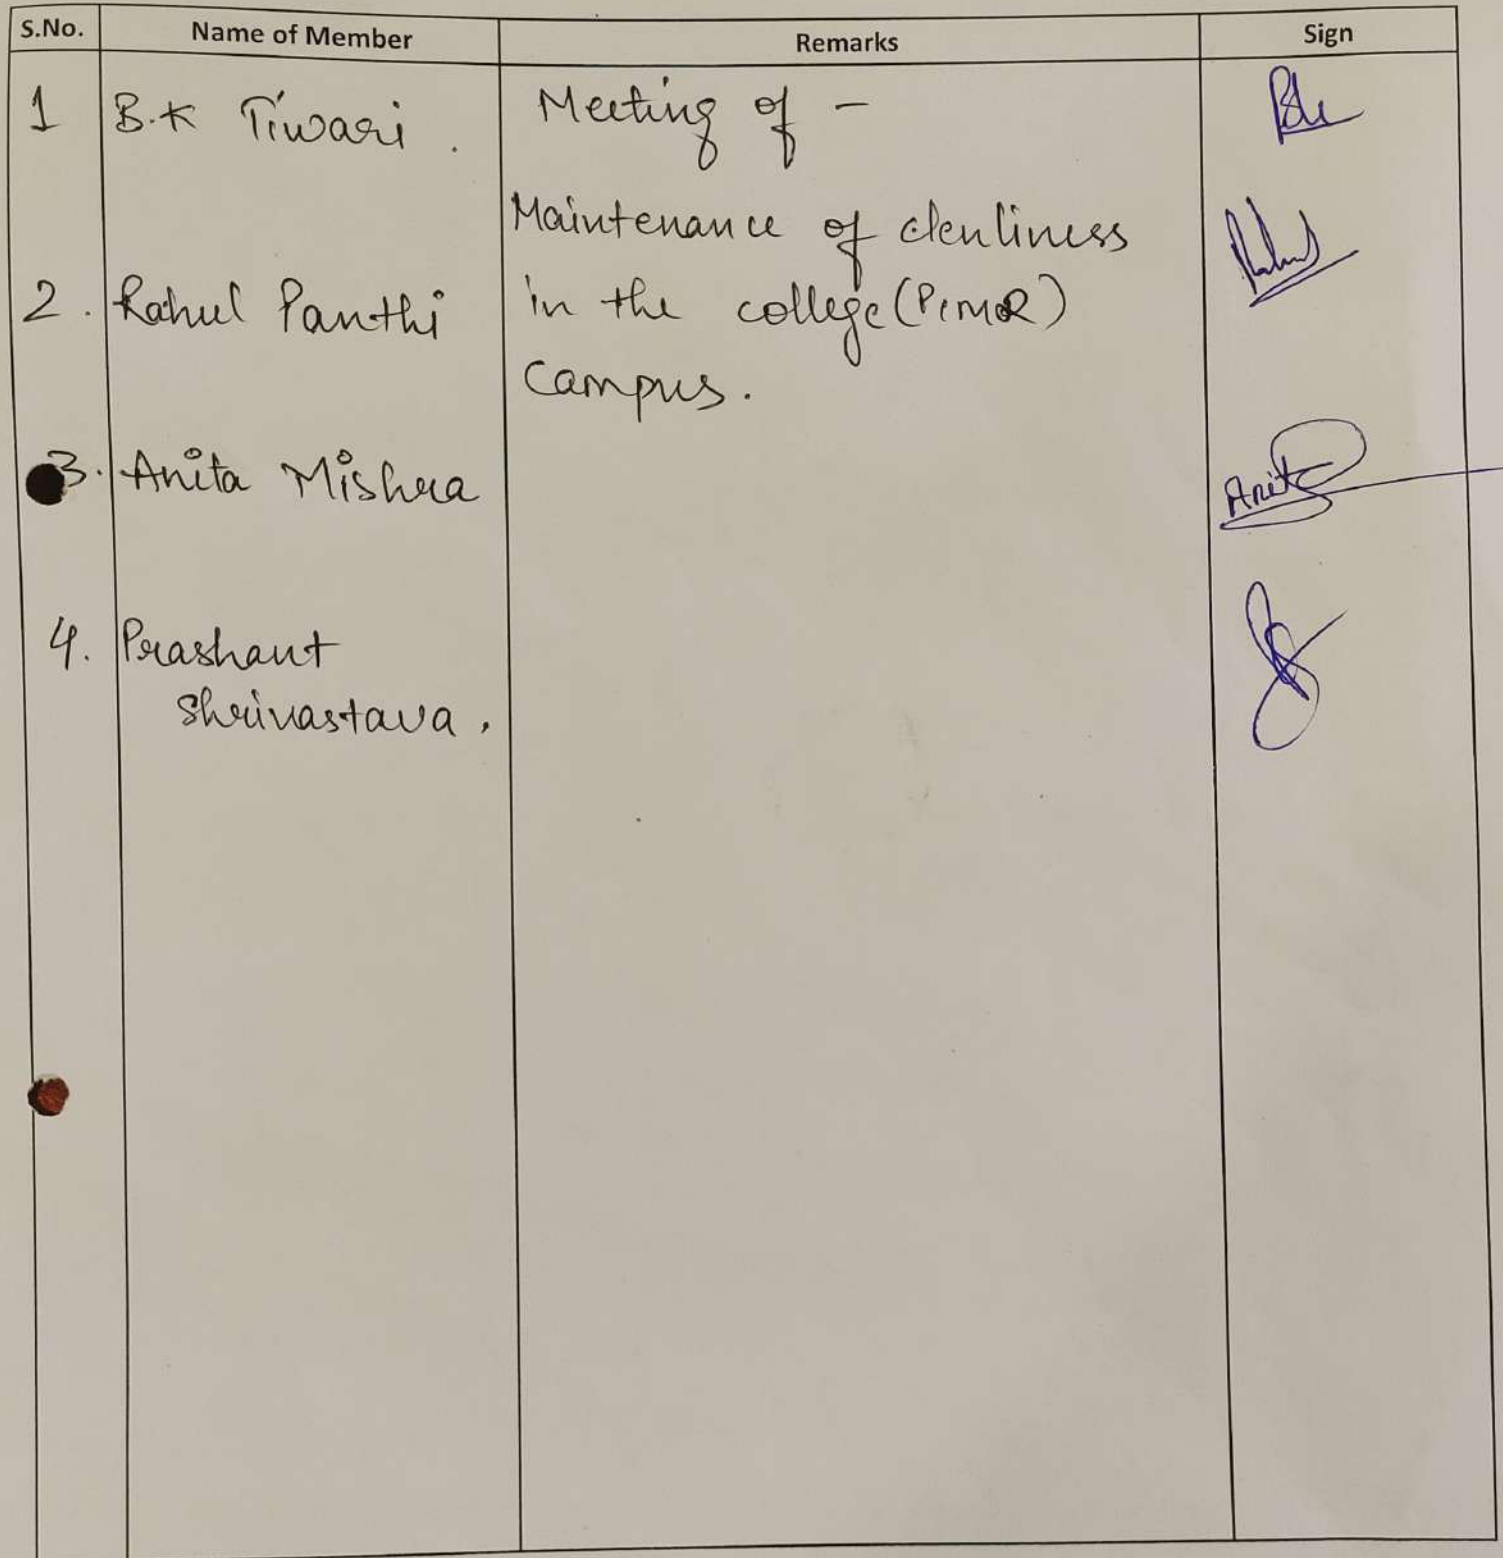 S.No. Name of Member Remarks Sign
1 B.K Tiwari. Meeting of -
Maintenance of clenliness
2. Rahul Panthi in the college (PIMR)
Campus.
3. Anita Mishra Anita
4. Prashant
Shrivastava.